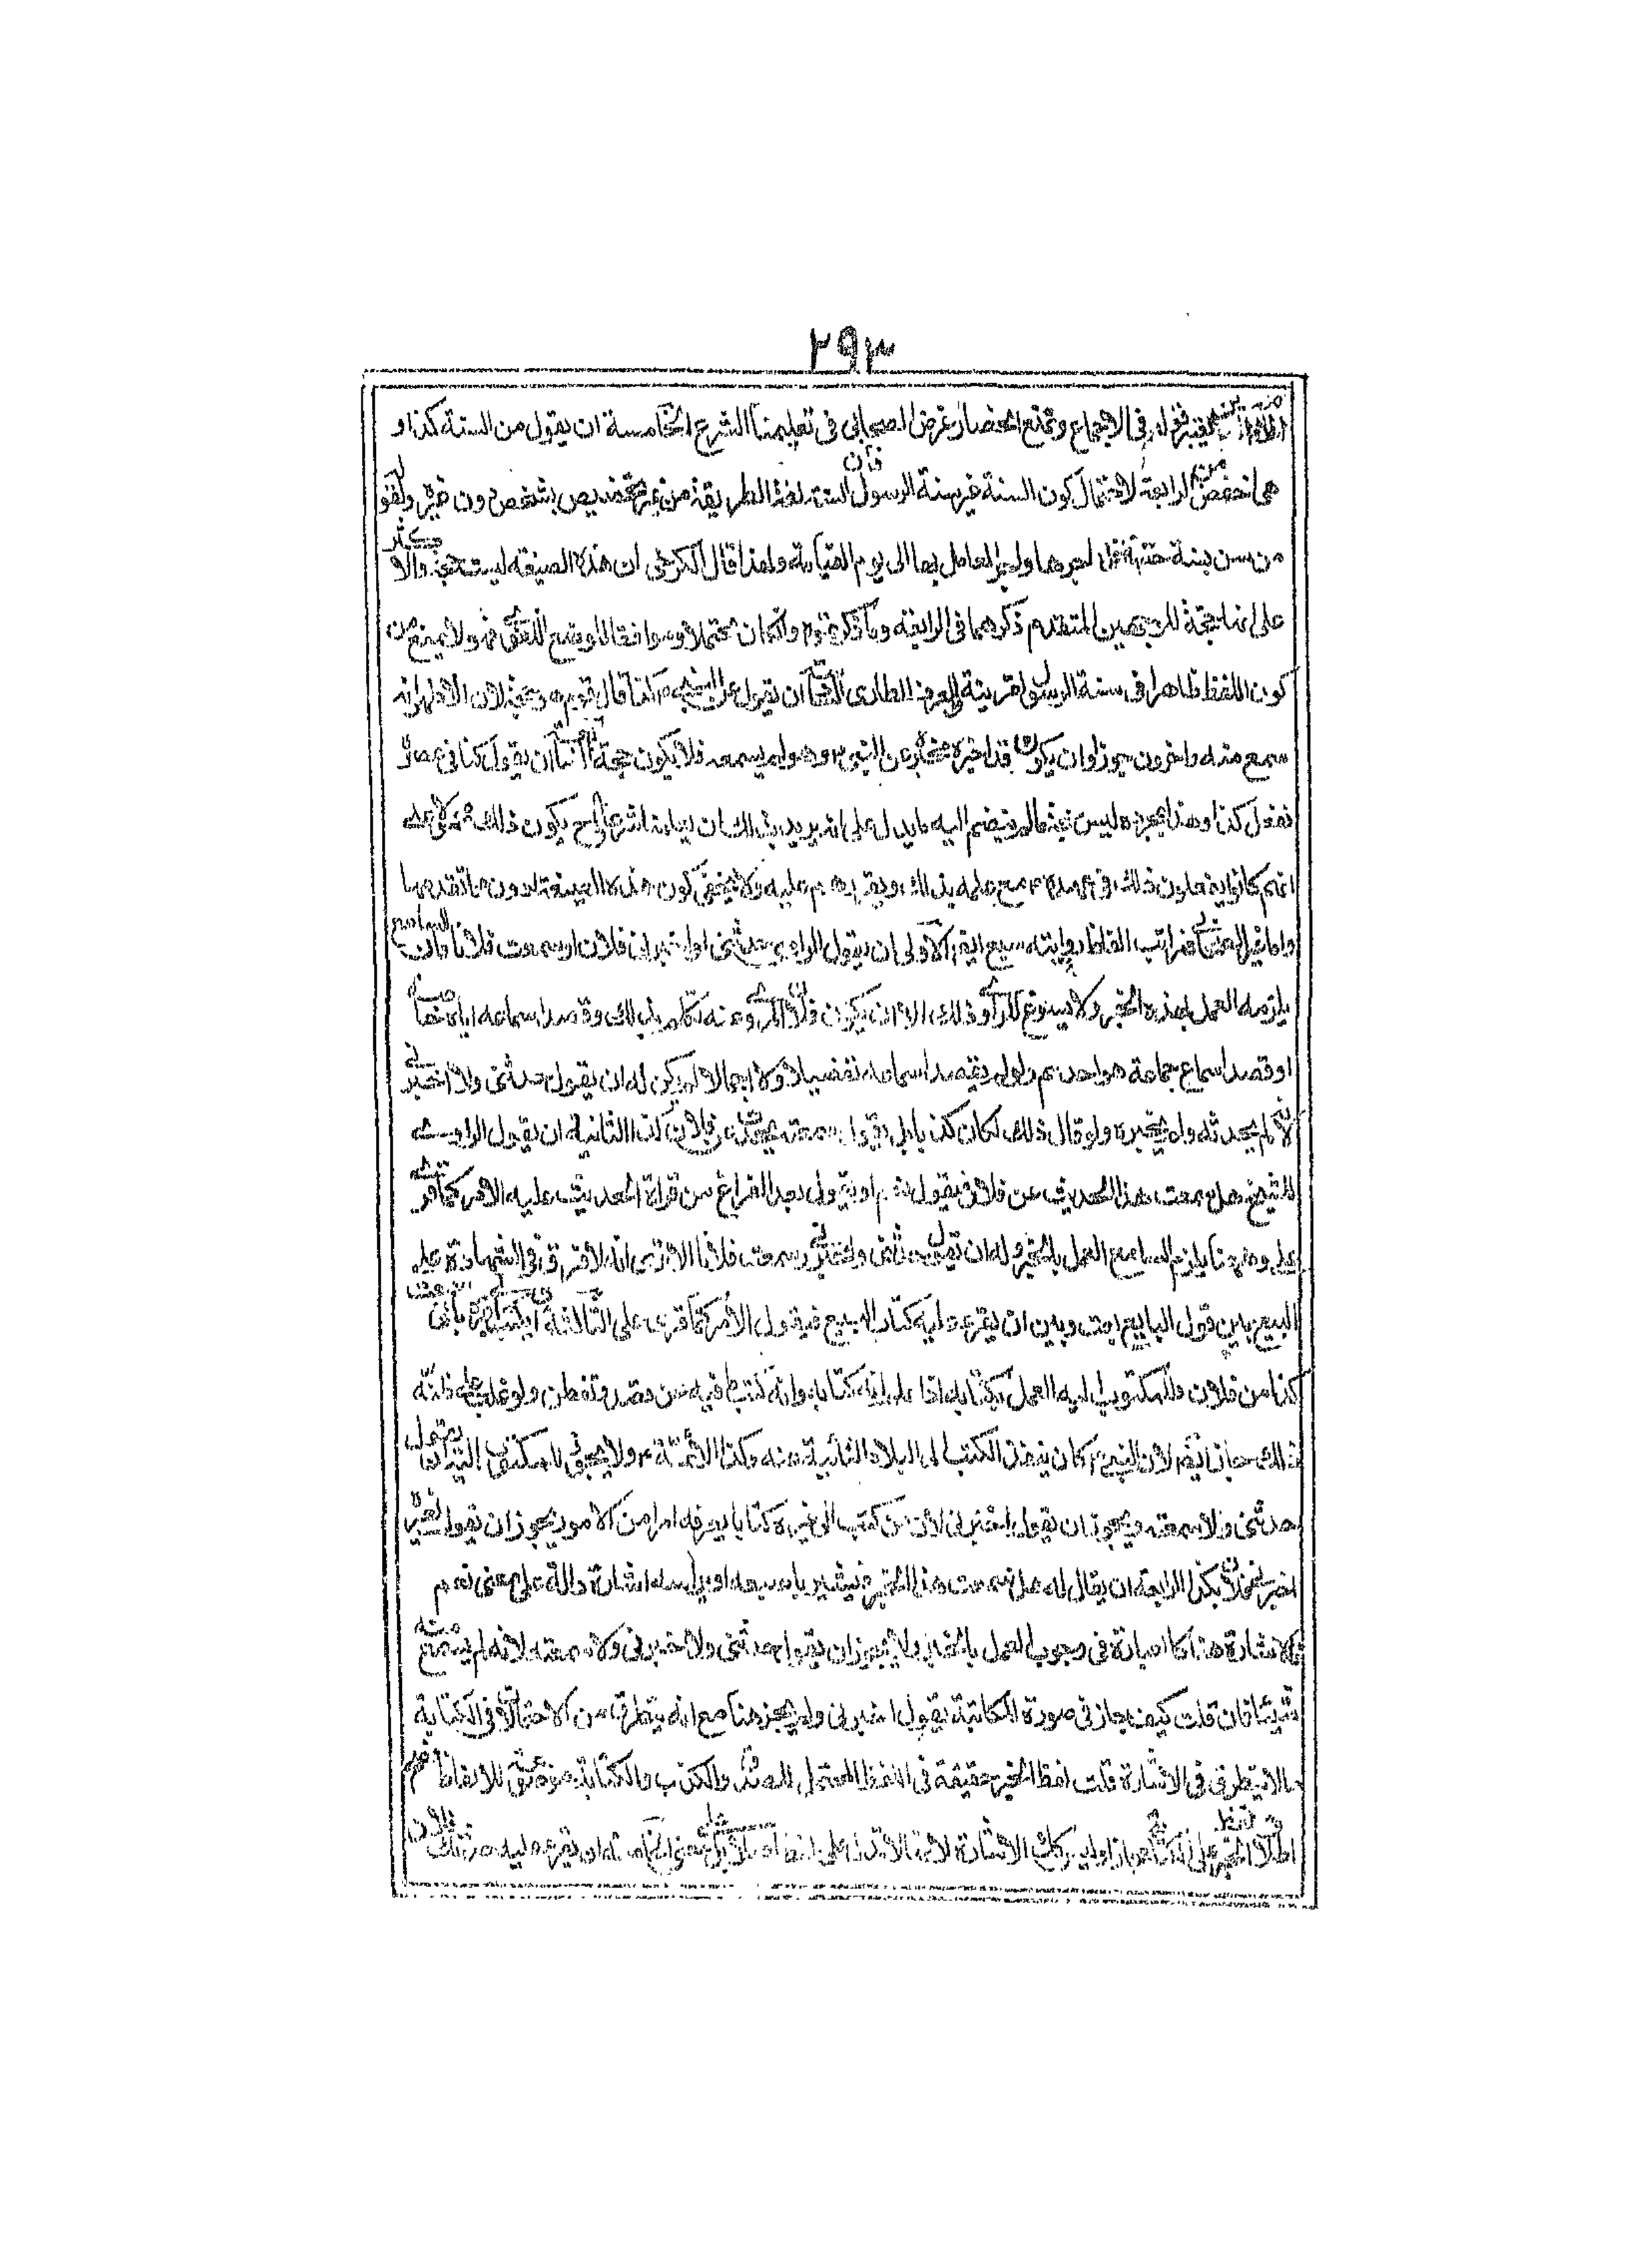 ٢٩٣
فى الاجماع وتمنع انحصار غرض الصحابى فى تعليمنا الشرع الخامسة ان يقول من السنة كذا و
هى اخفض من الرابعة لاحتمال كون السنة غير سنة الرسول فان السنة لغة الطريقة من غير تخصيص بشخص دون غيره ولقوله
من سن سنة حسنة فله اجرها واجر العامل بها الى يوم القيامة ولهذا قال الكرخى ان هذه الصيغة ليست بحجة والاكثر
على انها حجة للوجهين المتقدم ذكرهما فى الرابعة وما ذكروه وان كان محتملا وموافقا للوضع اللغوى فهو لا يمنع من
كون اللفظ ظاهرا فى سنة الرسول بقرينة العرف الطارى السادسة ان يقول عن النبى كذا قال قوم هو حجة لان الاظهر انه
سمع منه واخرون جوزوا ان يكون قد اخبره مخبر عن النبى وهو لم يسمعه فلا يكون حجة السابعة ان يقول كنا فى عصره
نفعل كذا وهذا بمجرده ليس حجة ما لم ينضم اليه ما يدل على انه يريد بذلك ان يعلمنا شرعا وح يكون ذلك محمولا على
انهم كانوا يفعلون ذلك فى عهده مع علمه بذلك وتقريرهم عليه ولا يخفى كون هذه الصيغة دون ما تقدمها
واما غير الصحابى فمراتب الفاظ روايته سبع ايضا الاولى ان يقول الراوى حدثنى او اخبرنى فلان او سمعت فلانا فان السامع
يلزمه العمل بهذا الخبر ولا يسوغ للراوى ذلك الا ان يكون فلان المروى عنه تكلم بذلك وقصد اسماعه اياه خاصة
او قصد اسماع جماعة هو احدهم ولو لم يقصد اسماعه تفصيلا ولا اجمالا لم يكن له ان يقول حدثنى ولا اخبرنى
لانه لم يحدثه ولم يخبره ولو قال ذلك لكان كذبا بل يقول سمعته يحدث عن فلان كذا الثانية ان يقول الراوى
للشيخ هل سمعت هذا الحديث عن فلان فيقول نعم او يقول بعد الفراغ من قراءة الحديث عليه الامر كما قرئ
على وههنا يلزم السامع العمل بالخبر وله ان يقول حدثنى واخبرنى وسمعت فلانا الا ترى انه لا فرق فى الشهادة على
البيع بين قول البايع بعت وبين ان يقرء عليه كتاب البيع فيقول الامر كما قرئ على الثالثة ان يكتب الى غيره بانى سمعت
كذا من فلان فللمكتوب اليه العمل بكتابه اذا علم انه كتابه وانه كتبه فيه عن قصد وتفطن ولو غلب على ظنه
ذلك جاز ايضا لان النبى كان ينفذ الكتب الى البلاد النائية عنه وكذا الائمة ولا يجوز للمكتوب اليه ان يقول
حدثنى ولا سمعته ويجوز ان يقول اخبرنى لان من كتب الى غيره كتابا يعرفه امرا من الامور يجوز ان يقول لغيره
اخبرنى فلان بكذا الرابعة ان يقال له هل سمعت هذا الخبر فيشير باصبعه او براسه اشارة دالة على معنى نعم
فالاشارة هنا كالعبارة فى وجوب العمل بالخبر ولا يجوز ان يقول حدثنى ولا اخبرنى ولا سمعته لانه لم يسمع منه
شيئا فان قلت كيف جاز فى صورة المكاتبة يقول اخبرنى ولم يجز هنا مع انه يتطرق من الاحتمال فى الكتابة
ما لا يتطرق فى الاشارة قلت لفظ الخبر حقيقة فى اللفظ المحتمل للصدق والكذب والكتابة موضوعة للالفاظ